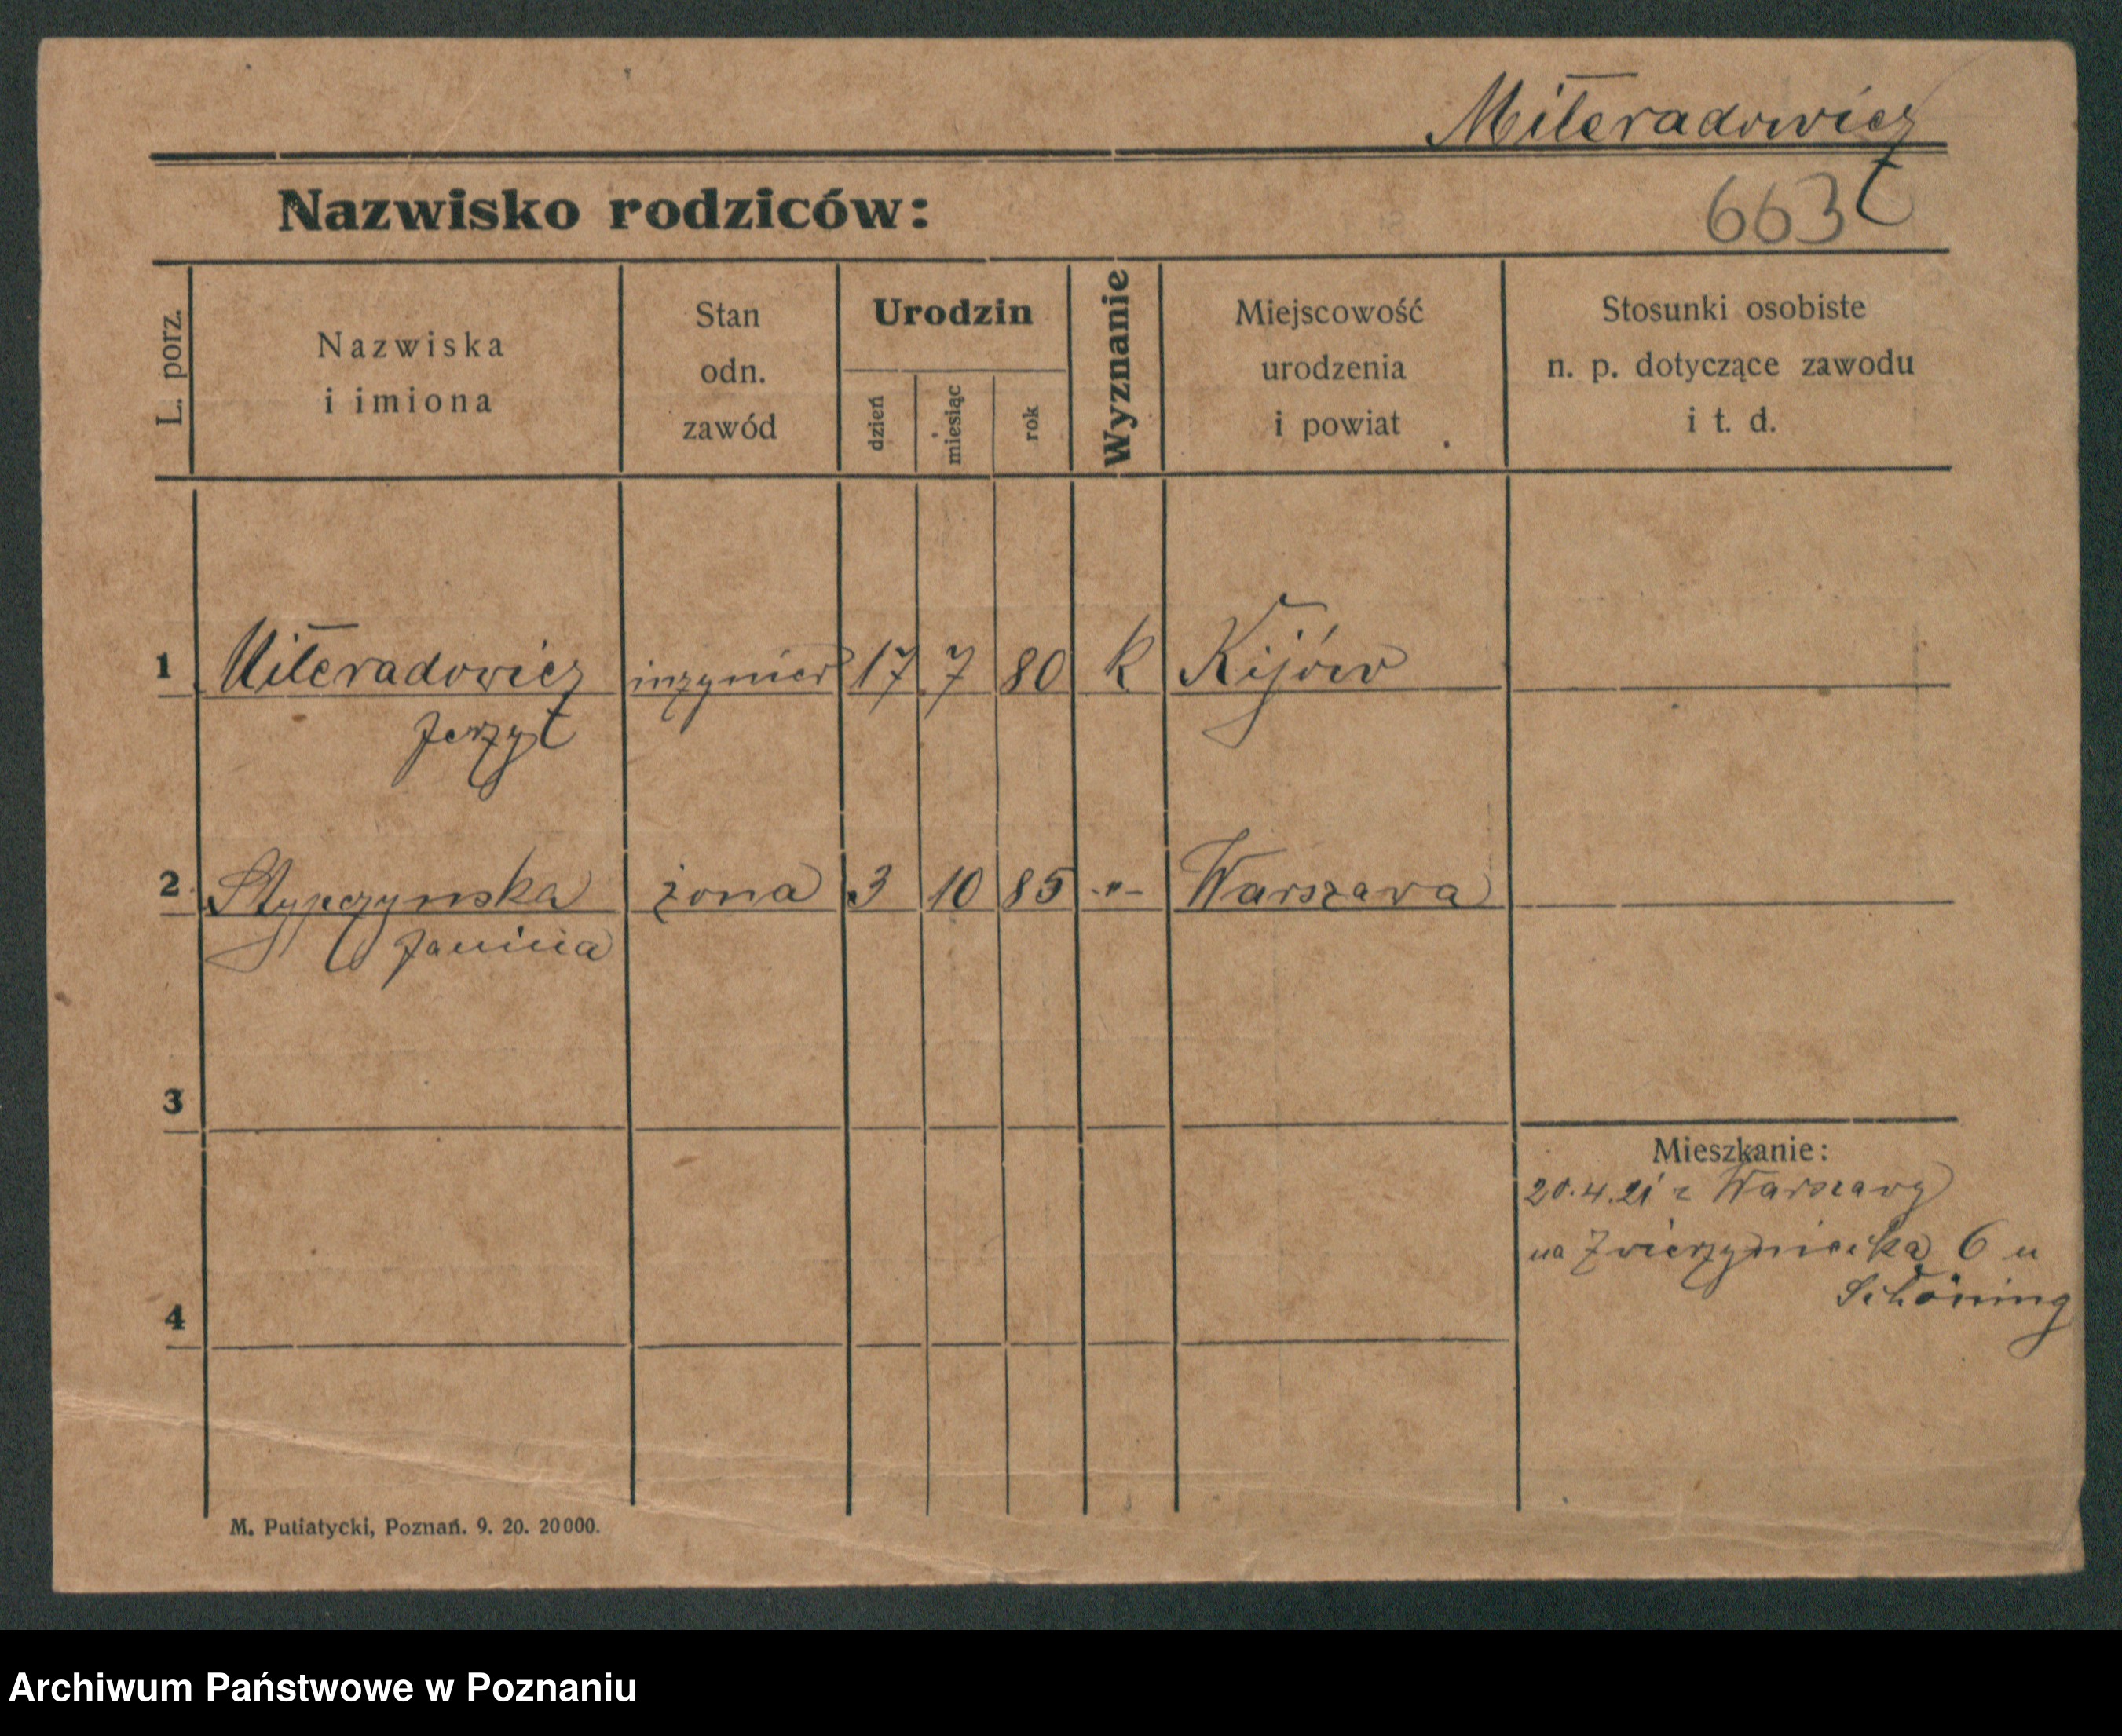 Miłeradowicz
Nazwisko rodziców:
663
L. porz.
Nazwiska
i imiona
Stan
odn.
zawód
Urodzin
dzień
miesiąc
rok
Wyznanie
Miejscowość
urodzenia
i powiat
Stosunki osobiste
n. p. dotyczące zawodu
i t. d.
1 Miłeradowicz inzynier 17 7 80 k Kijów
Jerzy
2 Stypczynska żona 3 10 85 -"- Warszawa
Janina
3
Mieszkanie:
20.4.21 z Warszawy
na Zwierzyniecka 6 u
Schöning
4
M. Putiatycki, Poznań. 9. 20. 20000.
Archiwum Państwowe w Poznaniu